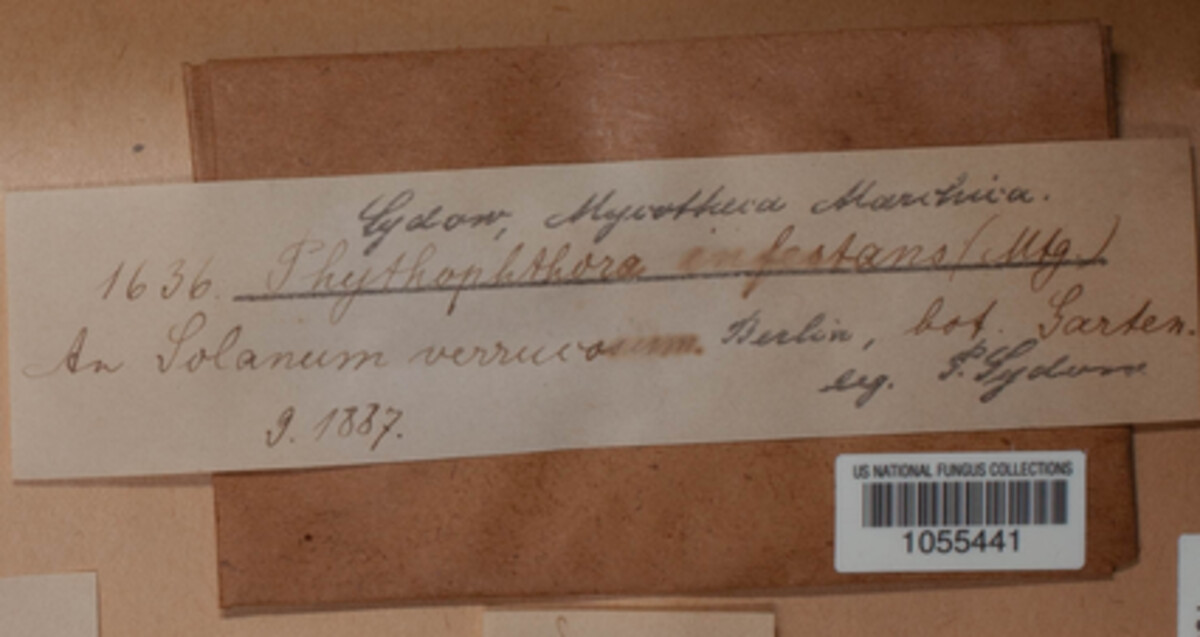 Sydow, Mycotheca Marchica.
1636. Phythophthora infestans (Mtg.)
An Solanum verrucosum. Berlin, bot. Garten.
leg. P. Sydow
9. 1887.
US NATIONAL FUNGUS COLLECTIONS
1055441